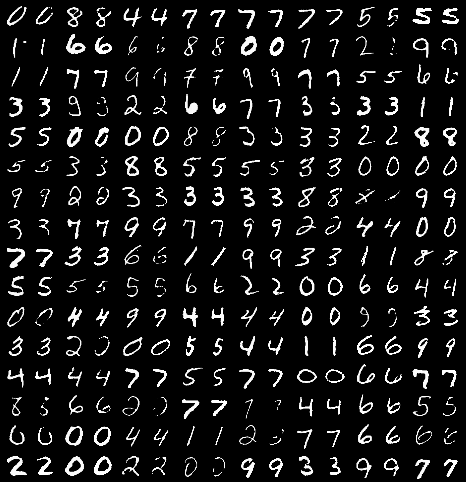 0 0 8 8 4 4 7 7 7 7 7 7 5 5 5 5
1 1 6 6 6 6 8 8 0 0 7 7 2 9 9
1 1 7 7 9 9 7 7 9 9 7 7 5 5 6 6
3 3 9 9 2 2 6 6 7 7 3 3 3 3 1 1
5 5 0 0 0 0 8 8 3 3 3 3 2 2 8 8
5 5 3 3 8 8 5 5 5 5 3 3 0 0 0 0
9 9 2 2 3 3 3 3 3 3 8 8 8 9 9
3 3 7 7 9 9 7 7 9 9 2 2 4 4 0 0
7 7 3 3 6 6 1 1 9 9 3 3 1 1 8 8
5 5 5 5 5 5 6 6 2 2 0 0 6 6 4 4
0 0 4 4 9 9 4 4 4 4 0 0 9 9 3 3
3 3 2 2 0 0 5 5 4 4 1 1 6 6 9 9
4 4 4 4 7 7 5 5 7 7 0 0 6 6 7 7
8 8 6 6 2 2 7 7 7 7 4 4 6 6 5 5
6 6 0 0 4 4 1 1 2 2 7 7 6 6 6 6
2 2 0 0 2 2 0 0 9 9 3 3 9 9 7 7